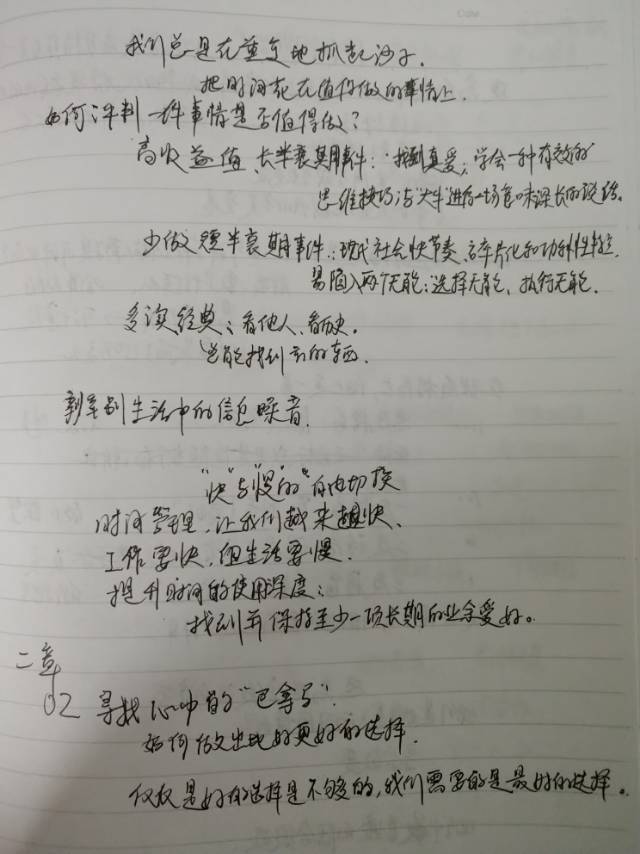 我们总是在重复地抓起沙子.
把时间花在值得做的事情上.
如何评判一件事情是否值得做?
高收益值、长半衰期事件:找到真爱;学会一种有效的
思维技巧;与大牛进行一场意味深长的谈话.
少做短半衰期事件.:现代社会快节奏、碎片化和功利性
易陷入两个无能:选择无能、执行无能.
多读经典;看他人、看历史.
总能找到新的东西.
割生活中的信息噪音.
"快"与"慢"的"自由切换
时间管理,让我们越来越快、
工作要快,但生活要慢.
提升时间的使用深度:
找到并保持至少一项长期的业余爱好。
二章
02 寻找心中的"巴拿马".
如何做出比好更好的选择.
仅仅是好的选择是不够的,我们需要的是最好的选择。